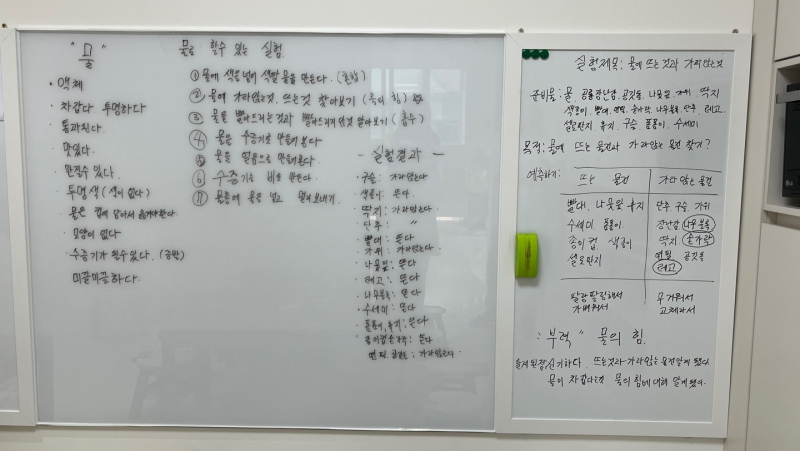 "물"
· 액체
· 차갑다 투명하다
· 통과된다.
· 맛있다.
· 만질수 있다.
· 투명색 (색이 없다)
· 물은 컵에 담아서 옮겨야한다
· 모양이 없다
· 수증기가 될수있다.
· 미끌미끌하다.
물로 할수 있는 실험.
① 물에 색을 넣어 색깔 물을 만든다. (혼합)
② 물에 가라앉는것, 뜨는것 찾아보기 (물의 힘)
③ 물을 빨아드리는것과 빨아드리지 않는것 알아보기 (흡수)
④ 물은 수증기로 만들어 본다
⑤ 물을 얼음으로 만들어본다.
⑥ 수증기로 비를 만든다.
⑦ 물통에 물을 담고
- 실험결과 -
· 구슬 : 가라앉는다
· 색종이 : 뜬다.
· 딱지 : 가라앉는다.
· 단추 : "
· 빨대 : 뜬다
· 가위 : 가라앉는다.
· 나뭇잎 : 뜬다
· 레고 : 뜬다
· 나무블록 : 뜬다
· 수세미 : 뜬다
· 뽕뽕이, 휴지 : 뜬다
· 종이컵 : 뜬다
· 연필, : 가라앉는다.
실험제목 : 물에 뜨는것과 가라앉는것
준비물 : 물, 공룡장난감, 공깃돌, 나뭇잎, 가위, 딱지
색종이, 빨대, 연필, 숟가락, 나무블록, 단추, 레고,
휴지, 구슬, 뽕뽕이, 수세미
목적 : 물에 뜨는 물건과 가라앉는 물건 찾기?
예측하기 :
뜨는 물건 가라앉는 물건
빨대, 나뭇잎 휴지 단추 구슬 가위
수세미 뽕뽕이 장난감 나무블록
종이컵 색종이 딱지 숟가락
연필 공깃돌
레고
팔랑팔랑해서 무거워서
가벼워서 고체라서
: "부력" 물의 힘.
알게된점 : 신기하다. 뜨는것과 가라앉는 물건알게 됐다.
물이 차갑다는것 물의 힘에 대해 알게됐어.